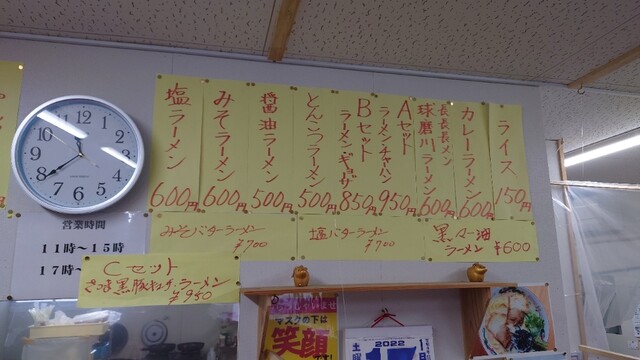 塩ラーメン
600円
みそラーメン
600円
醤油ラーメン
500円
とんこつラーメン
500円
Bセット
ラーメン・ギョーザ
850円
Aセット
ラーメン・チャーハン
950円
球磨川ラーメン
600円
カレーラーメン
600円
ライス
150円
営業時間
11時〜15時
17時〜
みそバターラーメン
¥700
塩バターラーメン
¥700
黒マー油
ラーメン ¥600
Cセット
ラーメン
¥950
マスクの下は
笑顔
です!
2022
土曜